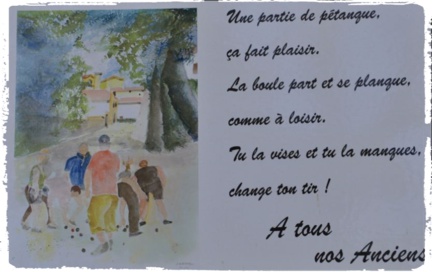 Une partie de pétanque,
ça fait plaisir.
La boule part et se planque,
comme à loisir.
Tu la vises et tu la manques,
change ton tir !
A tous
nos Anciens